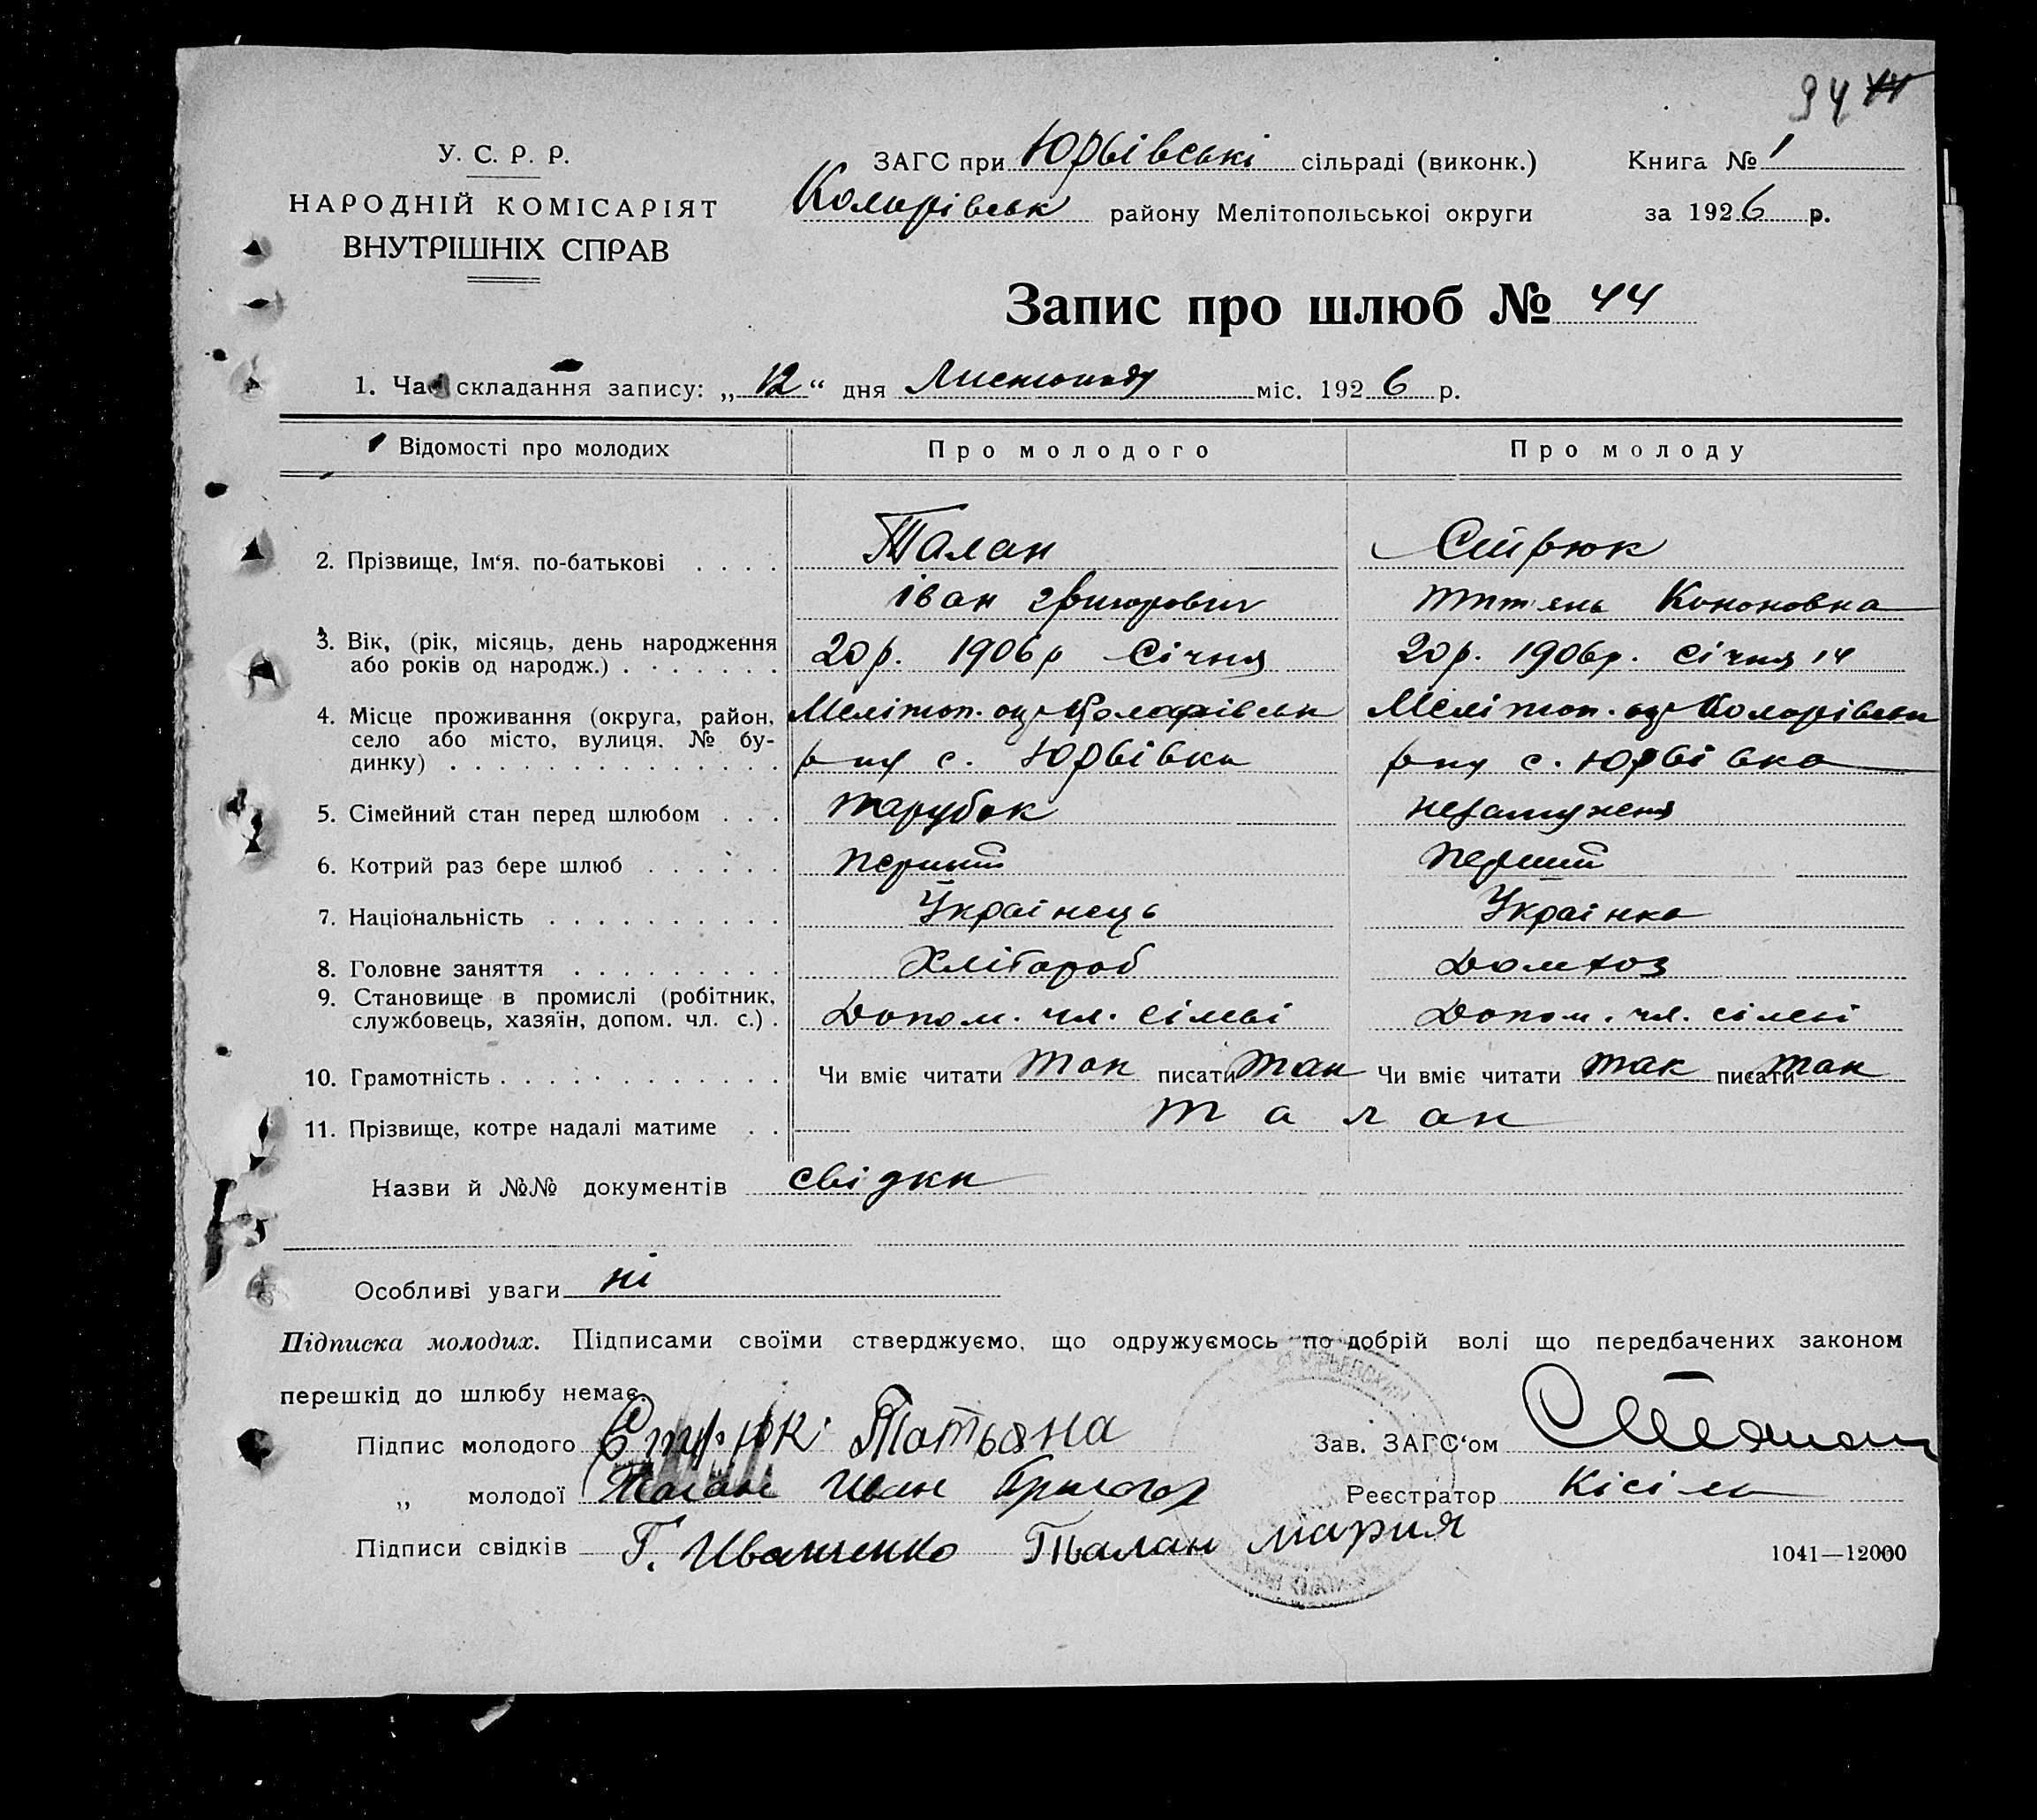 94
У. С. Р. Р.
НАРОДНІЙ КОМІСАРІЯТ
ВНУТРІШНІХ СПРАВ
ЗАГС при Юрьівські сільраді (виконк.) Книга № 1
Коларівськ району Мелітопольської округи за 1926 р.
Запис про шлюб № 44
1. Час складання запису: „12“ дня Листопаду міс. 1926 р.
Відомості про молодих Про молодого Про молоду
2. Прізвище, Ім‘я, по-батькові . . . . Талан
іван Григорович Кононовна
3. Вік, (рік, місяць, день народження
або років од народж.) . . . . . . . 20 р. 1906 р Січня 20 р. 1906 р. Січня 14
4. Місце проживання (округа, район,
село або місто, вулиця, № бу-
динку) . . . . . . . . . . . . . Мелітоп. ок Коларівськ Мелітоп. ок Коларівськ
р ну с. Юрьівка р ну с. Юрьівка
5. Сімейний стан перед шлюбом . . . парубок незамужня
6. Котрий раз бере шлюб . . . . . . перший перший
7. Національність . . . . . . . . . . Українець Українка
8. Головне заняття . . . . . . . . . Хлібороб Домхоз
9. Становище в промислі (робітник,
службовець, хазяїн, допом. чл. с.) . Допом. чл. сімьі Допом. чл. сімьі
10. Грамотність . . . . . . . . . . . . Чи вміє читати так писати так Чи вміє читати так писати так
11. Прізвище, котре надалі матиме . . Талан
Назви й №№ документів свідки
Особливі уваги ні
Підписка молодих. Підписами своїми стверджуємо, що одружуємось по добрій волі що передбачених законом
перешкід до шлюбу немає.
Підпис молодого Татьяна Зав. ЗАГС‘ом
„ молодої Талан Иван Григор Реєстратор
Підписи свідків Г. Иванченко Талан мария
1041—12000